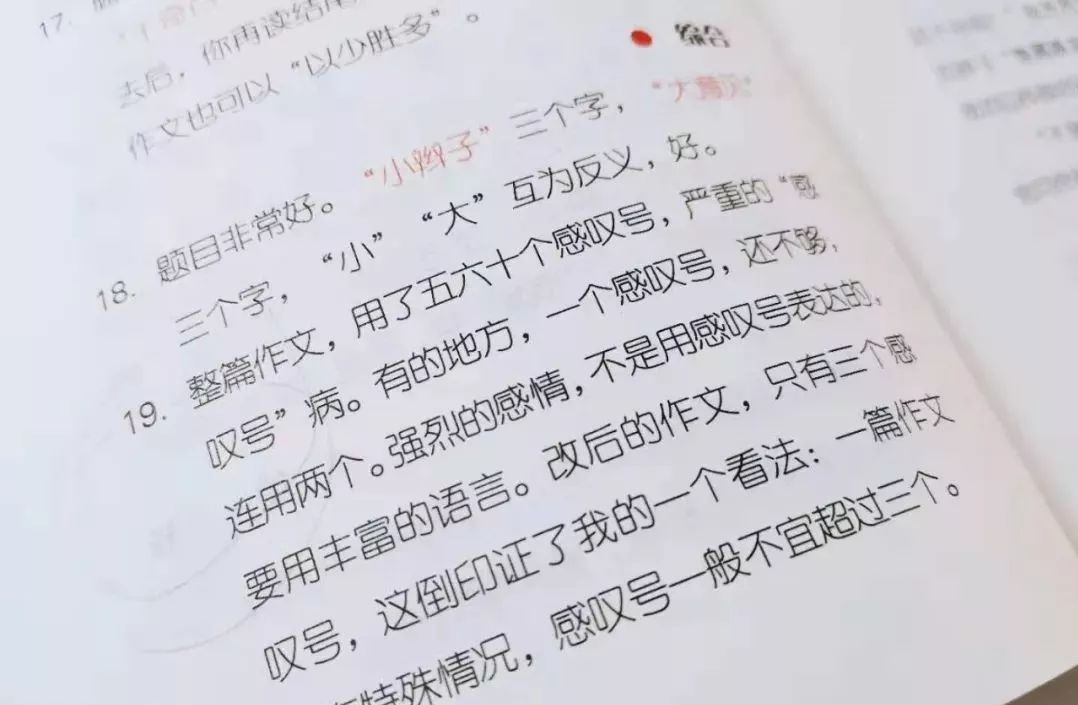 17.
去后，你再读结尾
作文也可以“以少胜多”。
18. 题目非常好。“小辫子”三个字，“大
三个字，“小”“大”互为反义，好。
19. 整篇作文，用了五六十个感叹号，严重的“感
叹号”病。有的地方，一个感叹号，还不够，
连用两个。强烈的感情，不是用感叹号表达的，
要用丰富的语言。改后的作文，只有三个感
叹号，这倒印证了我的一个看法：一篇作文
特殊情况，感叹号一般不宜超过三个。